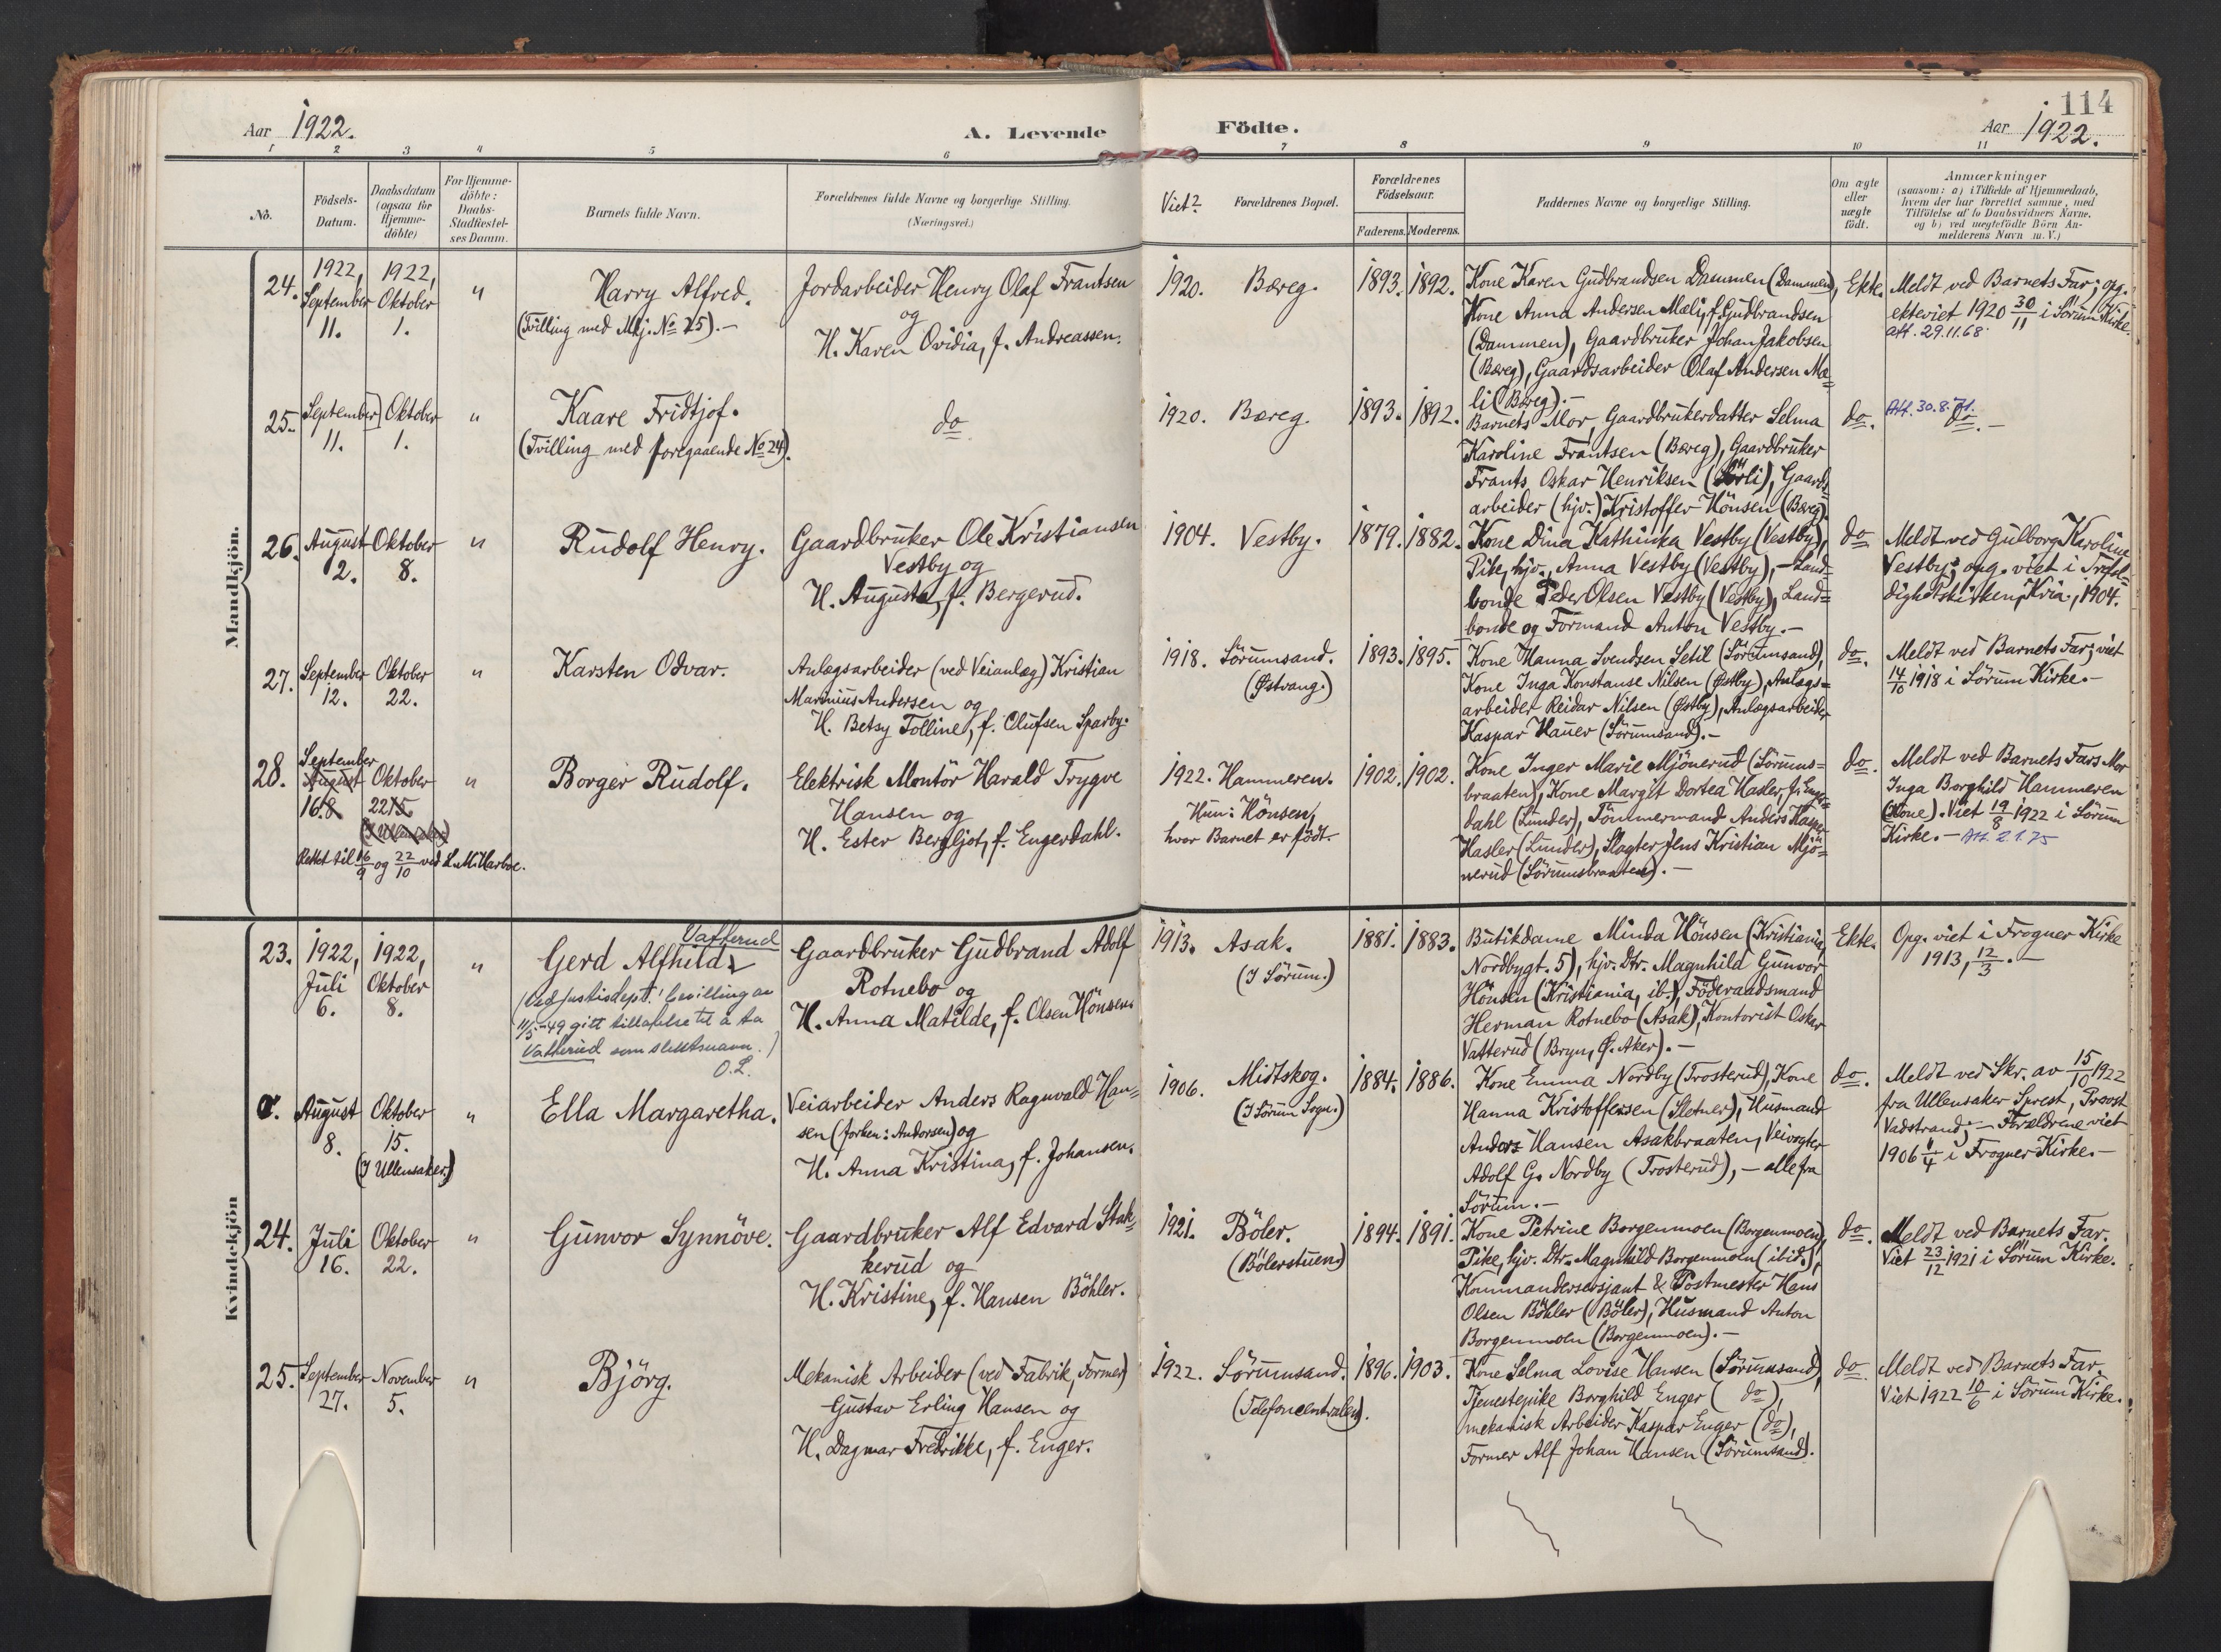 114
Aar 1922.
A. Levende
Födte.
Aar 1922.
1 2 3 4 5 6 7 8 9 10 11
No.
Födsels-
Datum.
Daabsdatum
(ogsaa for
Hjemme-
döbte)
For Hjemme-
döbte:
Daabs-
Stadfæstel-
ses Datum.
Barnets fulde Navn.
Forældrenes fulde Navne og borgerlige Stilling.
(Næringsvei.)
Viet?
Forældrenes Bopæl.
Forældrenes
Födselsaar.
Faderens. Moderens.
Faddernes Navne og borgerlige Stilling.
Om ægte
eller
uægte
födt.
Anmærkninger
(saasom: a) i Tilfælde af Hjemmedaab,
hvem der har forrettet samme, med
Tilföielse af to Daabsvidners Navne.
og b) ved uægtefödte Börn An-
melderens Navn m. V.)
Mandkjön.
24.
1922,
September
11.
1922,
Oktober
1.
"
Harry Alfred.
(Tvilling med Mkj. No 25).-
Jordarbeider Henry Olaf Frantsen
og
H. Karen Ovidia, f. Andreassen.
1920.
Bæreg.
1893.
1892.
Kone Karen Gudbrandsen Dammen (Dammen),
Kone Anna Andersen Mæli, f. Gudbrandsen
(Dammen), Gaardbruker Johan Jakobsen
(Bæreg), Gaardsarbeider Olaf Andersen Mæ=
li (Bæreg).-
Ekte.
Meldt ved Barnets Far; opg.
ekteviet 1920 30/11 i Sörum Kirke.
att. 29.11.68
25.
September
11.
Oktober
1.
"
Kaare Fridtjof.
(Tvilling med foregaaende No 24).
do.
1920.
Bæreg.
1893.
1892.
Barnets Mor, Gaardbrukerdatter Selma
Karoline Frantsen (Bæreg), Gaardbruker
Frants Oskar Henriksen (Sörli), Gaards=
arbeider (hjv.) Kristoffer Hönsen (Bæreg).
do.
Att. 30.8.71.
do.-
26.
August
2.
Oktober
8.
"
Rudolf Henry.
Gaardbruker Ole Kristiansen
Vestby og
H. Augusta, f. Bergerud.
1904.
Vestby.
1879.
1882.
Kone Dina Kathinka Vestby (Vestby),
Pike, hjv., Anna Vestby (Vestby), - Land=
bonde Peder Olsen Vestby (Vestby), Land=
bonde og Formand Anton Vestby.-
do
Meldt ved Gulborg Karoline
Vestby; opg. viet i Trefol=
dighetskirken, Kria., 1904.
27.
September
12.
Oktober
22.
"
Karsten Odvar.
Anlægsarbeider (ved Veianlæg) Kristian
Marinius Andersen og
H. Betsy Tolline, f. Olufsen Sparby.
1918.
Sörumsand.
(Østvang.)
1893.
1895.
Kone Hanna Svendsen Setil (Sörumsand),
Kone Inga Konstanse Nilsen (Østby), Anlægs=
arbeider Reidar Nilsen (Østby), Anlægsarbeider
Kaspar Hauer (Sörumsand).-
do.
Meldt ved Barnets Far; viet
14/10 1918 i Sörum Kirke.-
28.
September
August
16. 8
Oktober
22 15
Rettet til 16/9 og 22/10 ved L.M. Harboe.
"
Borger Rudolf.
Elektrisk Montör Harald Trygve
Hansen og
H. Ester Bergljot, f. Engerdahl.
1922.
Hammeren.
Hun: Hönsen,
hvor Barnet er födt.
1902.
1902.
Kone Inger Marie Mjönerud (Sörums=
braaten), Kone Margit Dortea Hasler, f. Enger=
dahl (Lunder), Tömmermand Anders
Hasler (Lunder), Slagter Jens Kristian Mjö=
nerud (Sörumsbraaten).-
do.
Meldt ved Barnets Fars Mor
Inga Borghild Hammeren
(Kone). Viet 19/8 1922 i Sörum
Kirke.- Att. 2.1.75
Kvindekjön
23.
1922,
Juli
6.
1922,
Oktober
8.
"
Vatterud
Gerd Alfhild
(Ved Justisdept.' bevilling av
11/5-49 gitt tillatelse til å ta
Vatterud som slektsnavn.)
O.L.
Gaardbruker Gudbrand Adolf
Rotnebo og
H. Anna Matilde, f. Olsen Hönsen
1913.
Asak.
(I Sörum.)
1881.
1883.
Butikdame Minda Hönsen (Kristiania,
Nordbygt. 5), hjv. Dtr. Magnhild Gunvor
Hönsen (Kristiania, ib.), Föderaadsmand
Herman Rotnebo (Asak), Kontorist Oskar
Vatterud (Bryn, Ø. Aker).-
Ekte.
Opg. viet i Frogner Kirke
1913, 12/3.-
a.
August
8.
Oktober
15.
(I Ullensaker.)
"
Ella Margaretha.
Veiarbeider Anders Ragnvald Han=
sen (forhen: Andorsen) og
H. Anna Kristina, f. Johansen.
1906.
Midtskog.
(I Sörum Sogn.)
1884.
1886.
Kone Emma Nordby (Trosterud), Kone
Hanna Kristoffersen (Sletner), Husmand
Anders Hansen Asakbraaten, Veivogter
Adolf G. Nordby (Trosterud), - alle fra
Sörum.-
do.
Meldt ved Skr. av 15/10 1922
fra Ullensaker Sprest, Provst
Vadstrand.- Forældrene viet
1906 4/4 i Frogner Kirke.-
24.
Juli
16.
Oktober
22.
"
Gunvor Synnöve.
Gaardbruker Alf Edvard Stak=
kerud og
H. Kristine, f. Hansen Böhler.
1921.
Böler.
(Bölerstuen)
1894.
1891.
Kone Petrine Borgenmoen (Borgenmoen),
Pike, hjv. Dtr. Magnhild Borgenmoen (ibid.),
Kommandersersjant & Postmester Hans
Olsen Böhler (Böler), Husmand Anton
Borgenmoen (Borgenmoen).-
do.
Meldt ved Barnets Far.
Viet 23/12 1921 i Sörum Kirke.
25.
September
27.
November
5.
"
Björg.
Mekanisk Arbeider (ved Fabrik, Former)
Gustav Erling Hansen og
H. Dagmar Fredrikke, f. Enger.
1922.
Sörumsand.
(Telefoncentralen).
1896.
1903.
Kone Selma Lovise Hansen (Sörumsand),
Tjenestepike Borghild Enger (do),
mekanisk Arbeider Kaspar Enger (do),
Former Alf Johan Hansen (Sörumsand).
do.
Meldt ved Barnets Far.
Viet 1922 10/6 i Sörum Kirke.